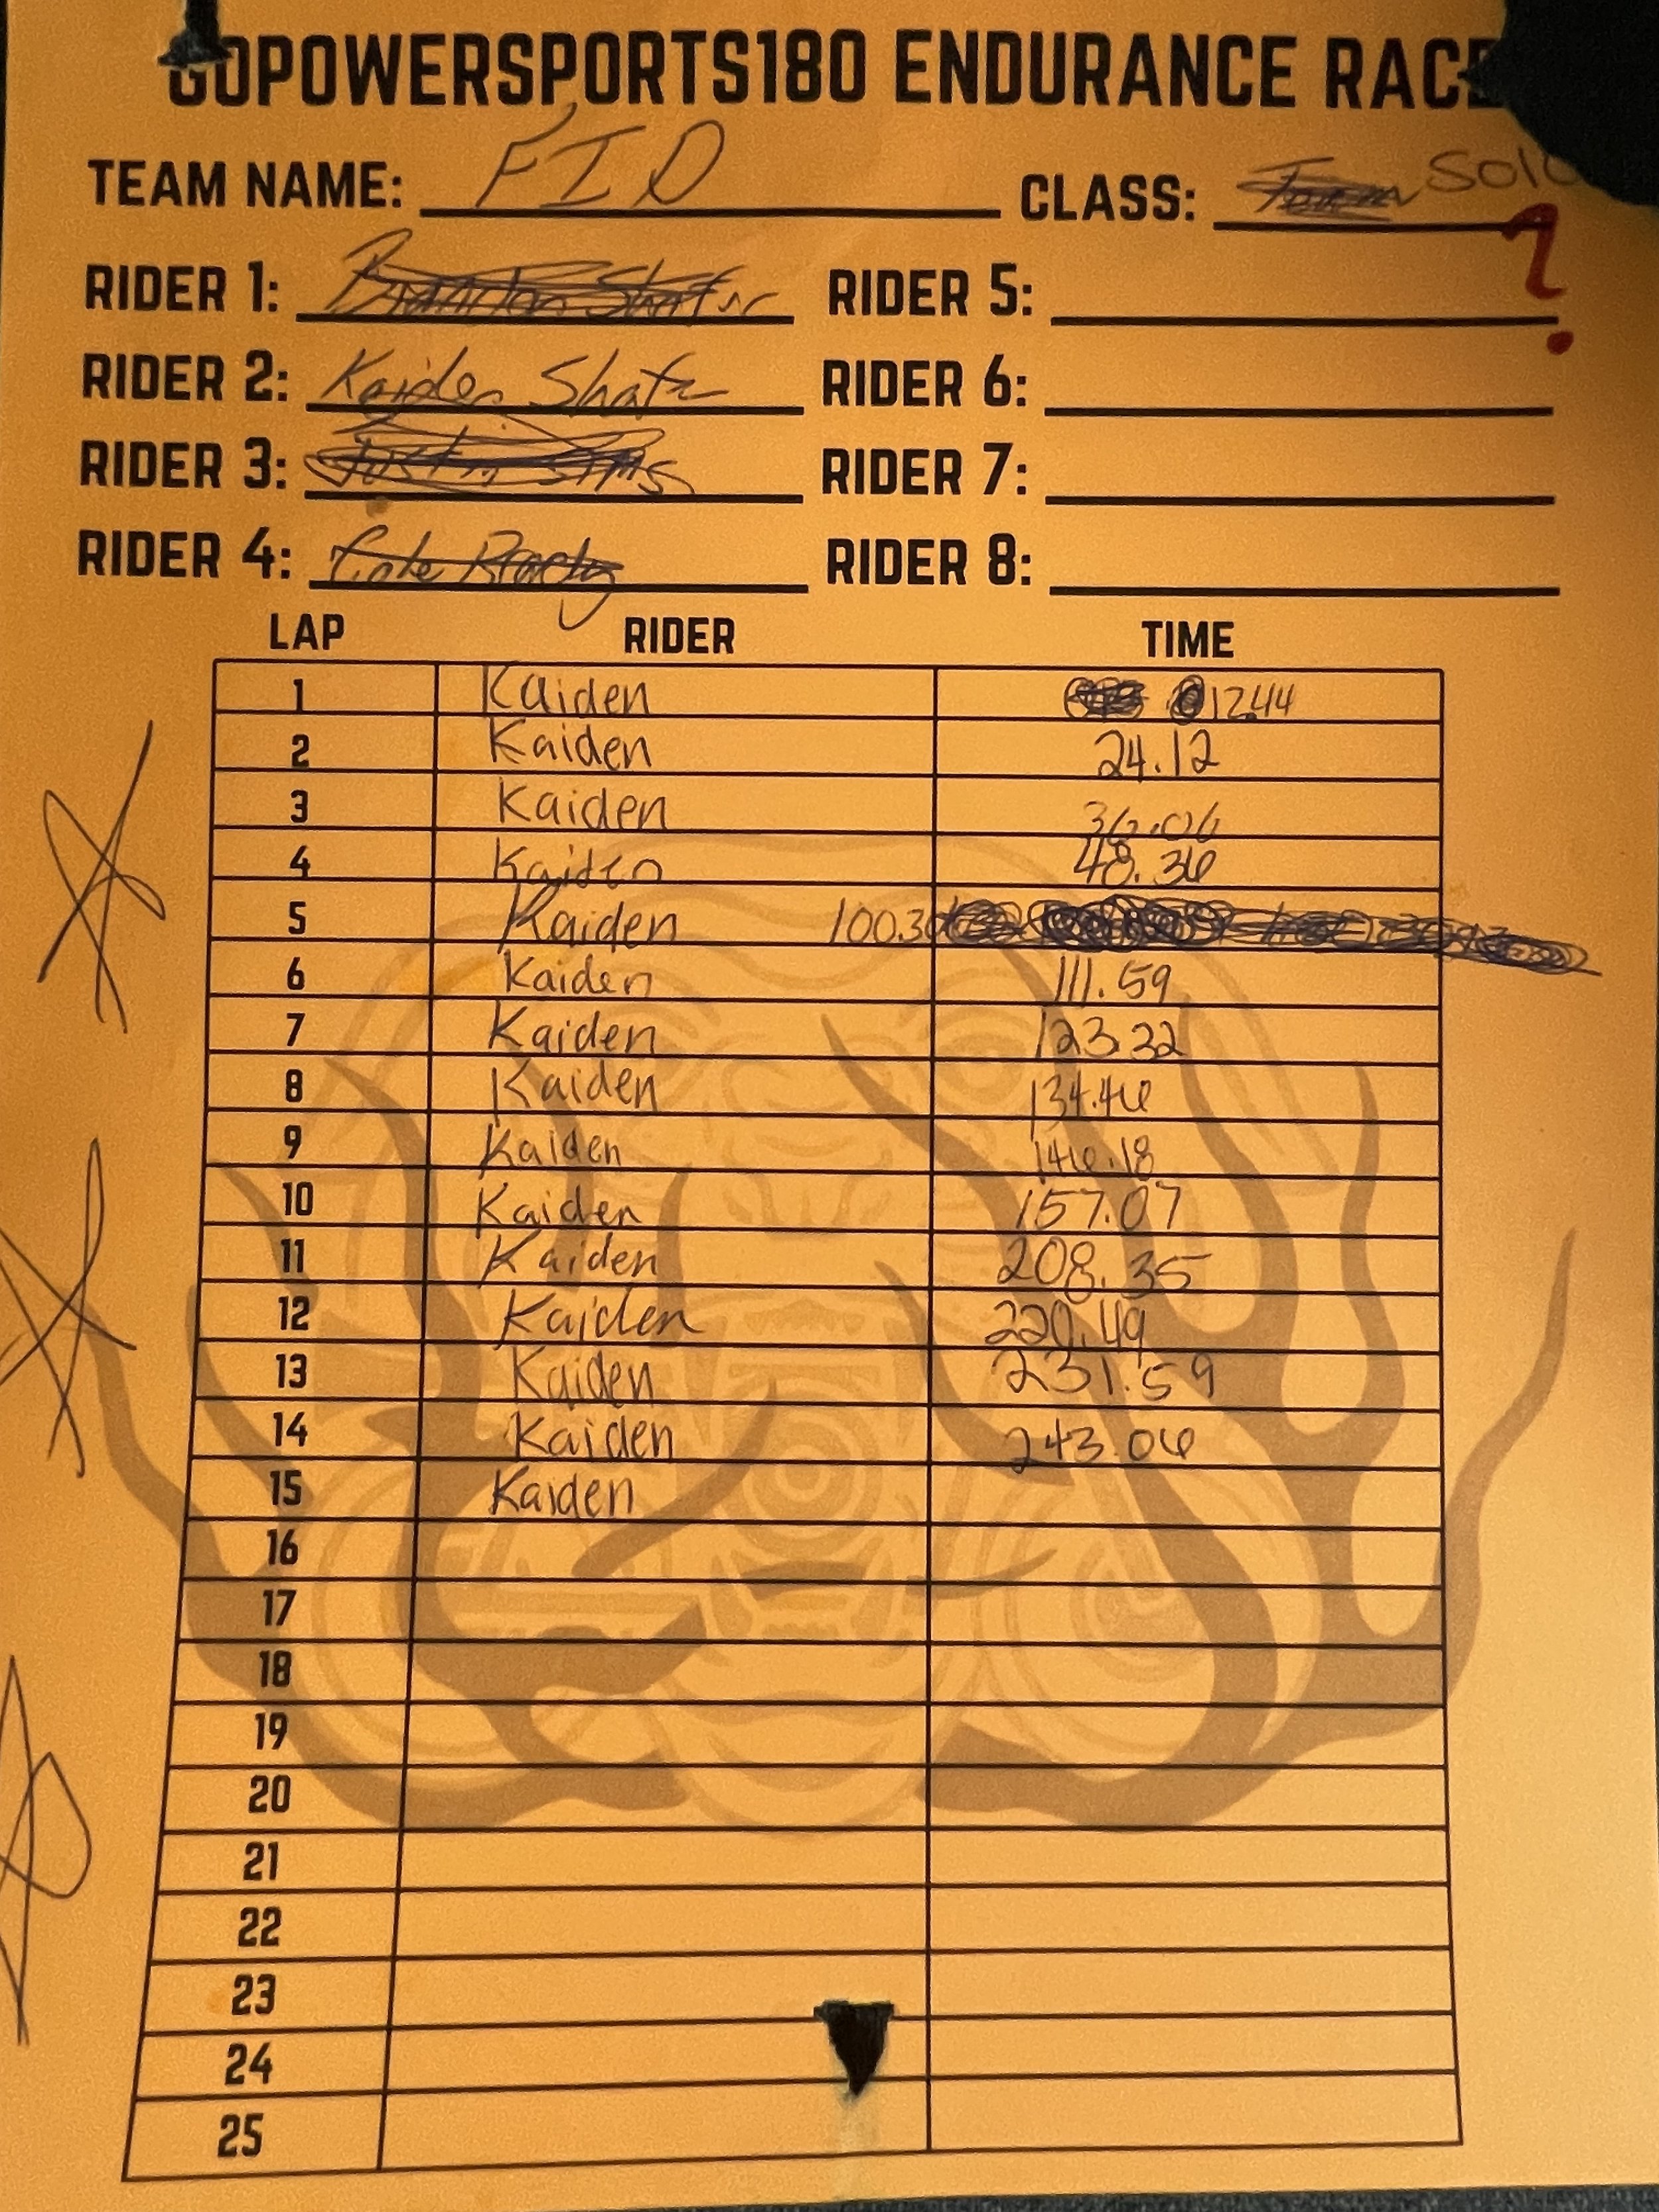 GOPOWERSPORTS180 ENDURANCE RACE
TEAM NAME: FID CLASS: Solo
?
RIDER 1: RIDER 5:
RIDER 2: Kaiden Shafr RIDER 6:
RIDER 3: Justin Sims RIDER 7:
RIDER 4: Cole Brady RIDER 8:
LAP RIDER TIME
1 Kaiden 12.44
2 Kaiden 24.12
3 Kaiden 36.06
4 Kaiden 48.36
5 Kaiden 100.30
6 Kaiden 111.59
7 Kaiden 123.32
8 Kaiden 134.46
9 Kaiden 146.18
10 Kaiden 157.07
11 Kaiden 208.35
12 Kaiden 220.49
13 Kaiden 231.59
14 Kaiden 243.06
15 Kaiden
16
17
18
19
20
21
22
23
24
25